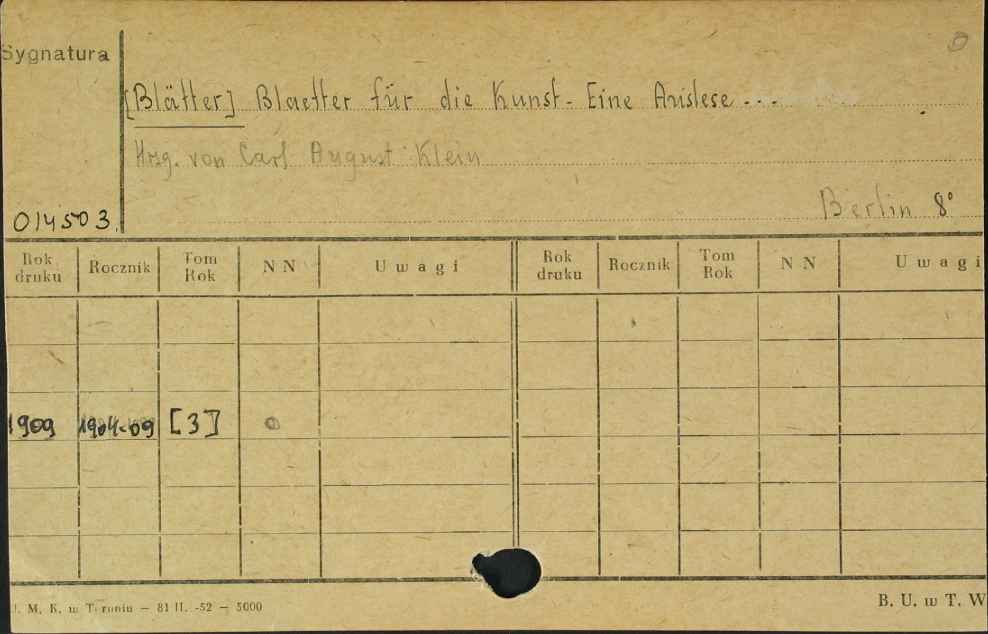 Sygnatura
[Blätter] Blaetter für die Kunst. Eine Auslese...
Hrsg. von Carl August Klein
Berlin 8°
014503.
Rok druku Rocznik Tom Rok NN Uwagi Rok druku Rocznik Tom Rok NN Uwagi
1909 1904-09 [3] 0
U. M. K. w Toruniu — 81 II. -52 — 5000
B. U. w T. W